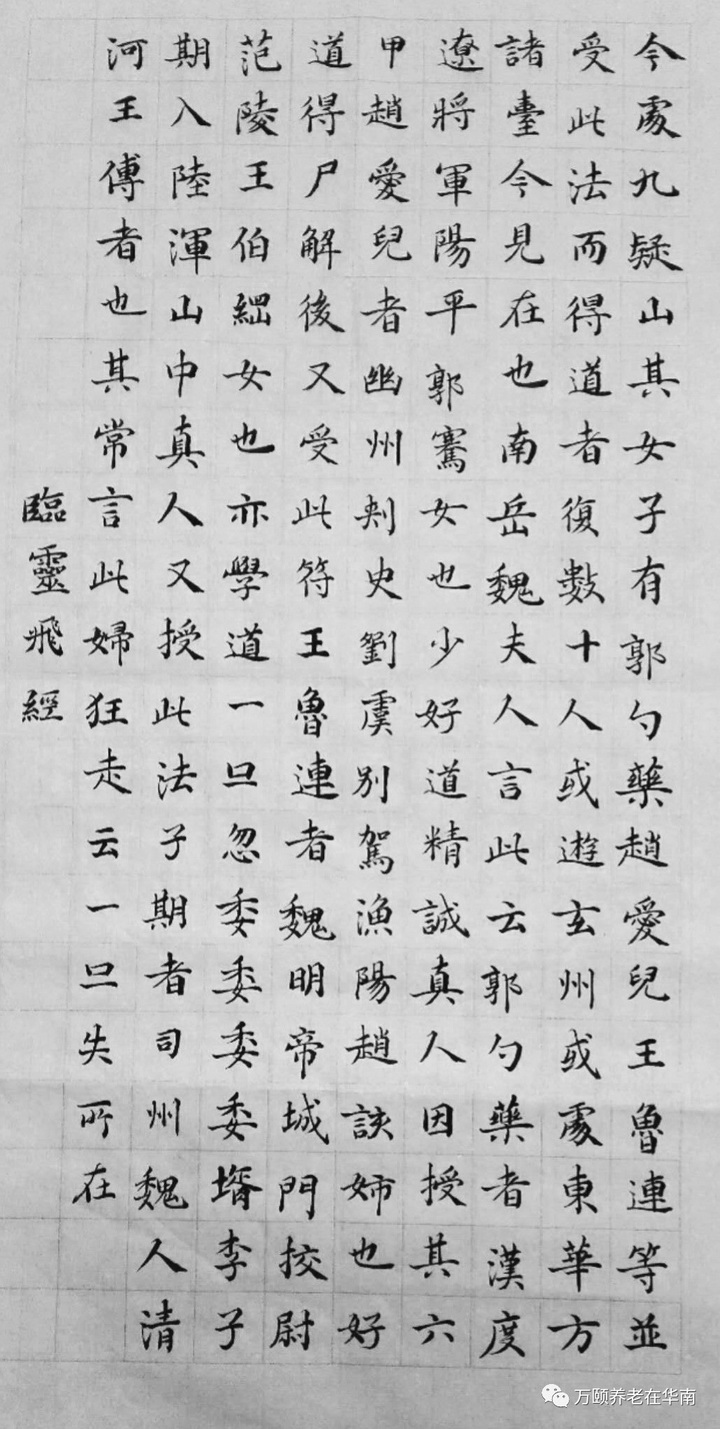 今處九疑山其女子有郭勺藥趙愛兒王魯連等並
受此法而得道者復數十人或遊玄州或處東華方
諸臺今見在也南岳魏夫人言此云郭勺藥者漢度
遼將軍陽平郭騫女也少好道精誠真人因授其六
甲趙愛兒者幽州刺史劉虞別駕漁陽趙該姊也好
道得尸解後又受此符王魯連者魏明帝城門挍尉
范陵王伯綱女也亦學道一旦忽委委委委壻李子
期入陸渾山中真人又授此法子期者司州魏人清
河王傅者也其常言此婦狂走云一旦失所在
臨靈飛經
万颐养老在华南